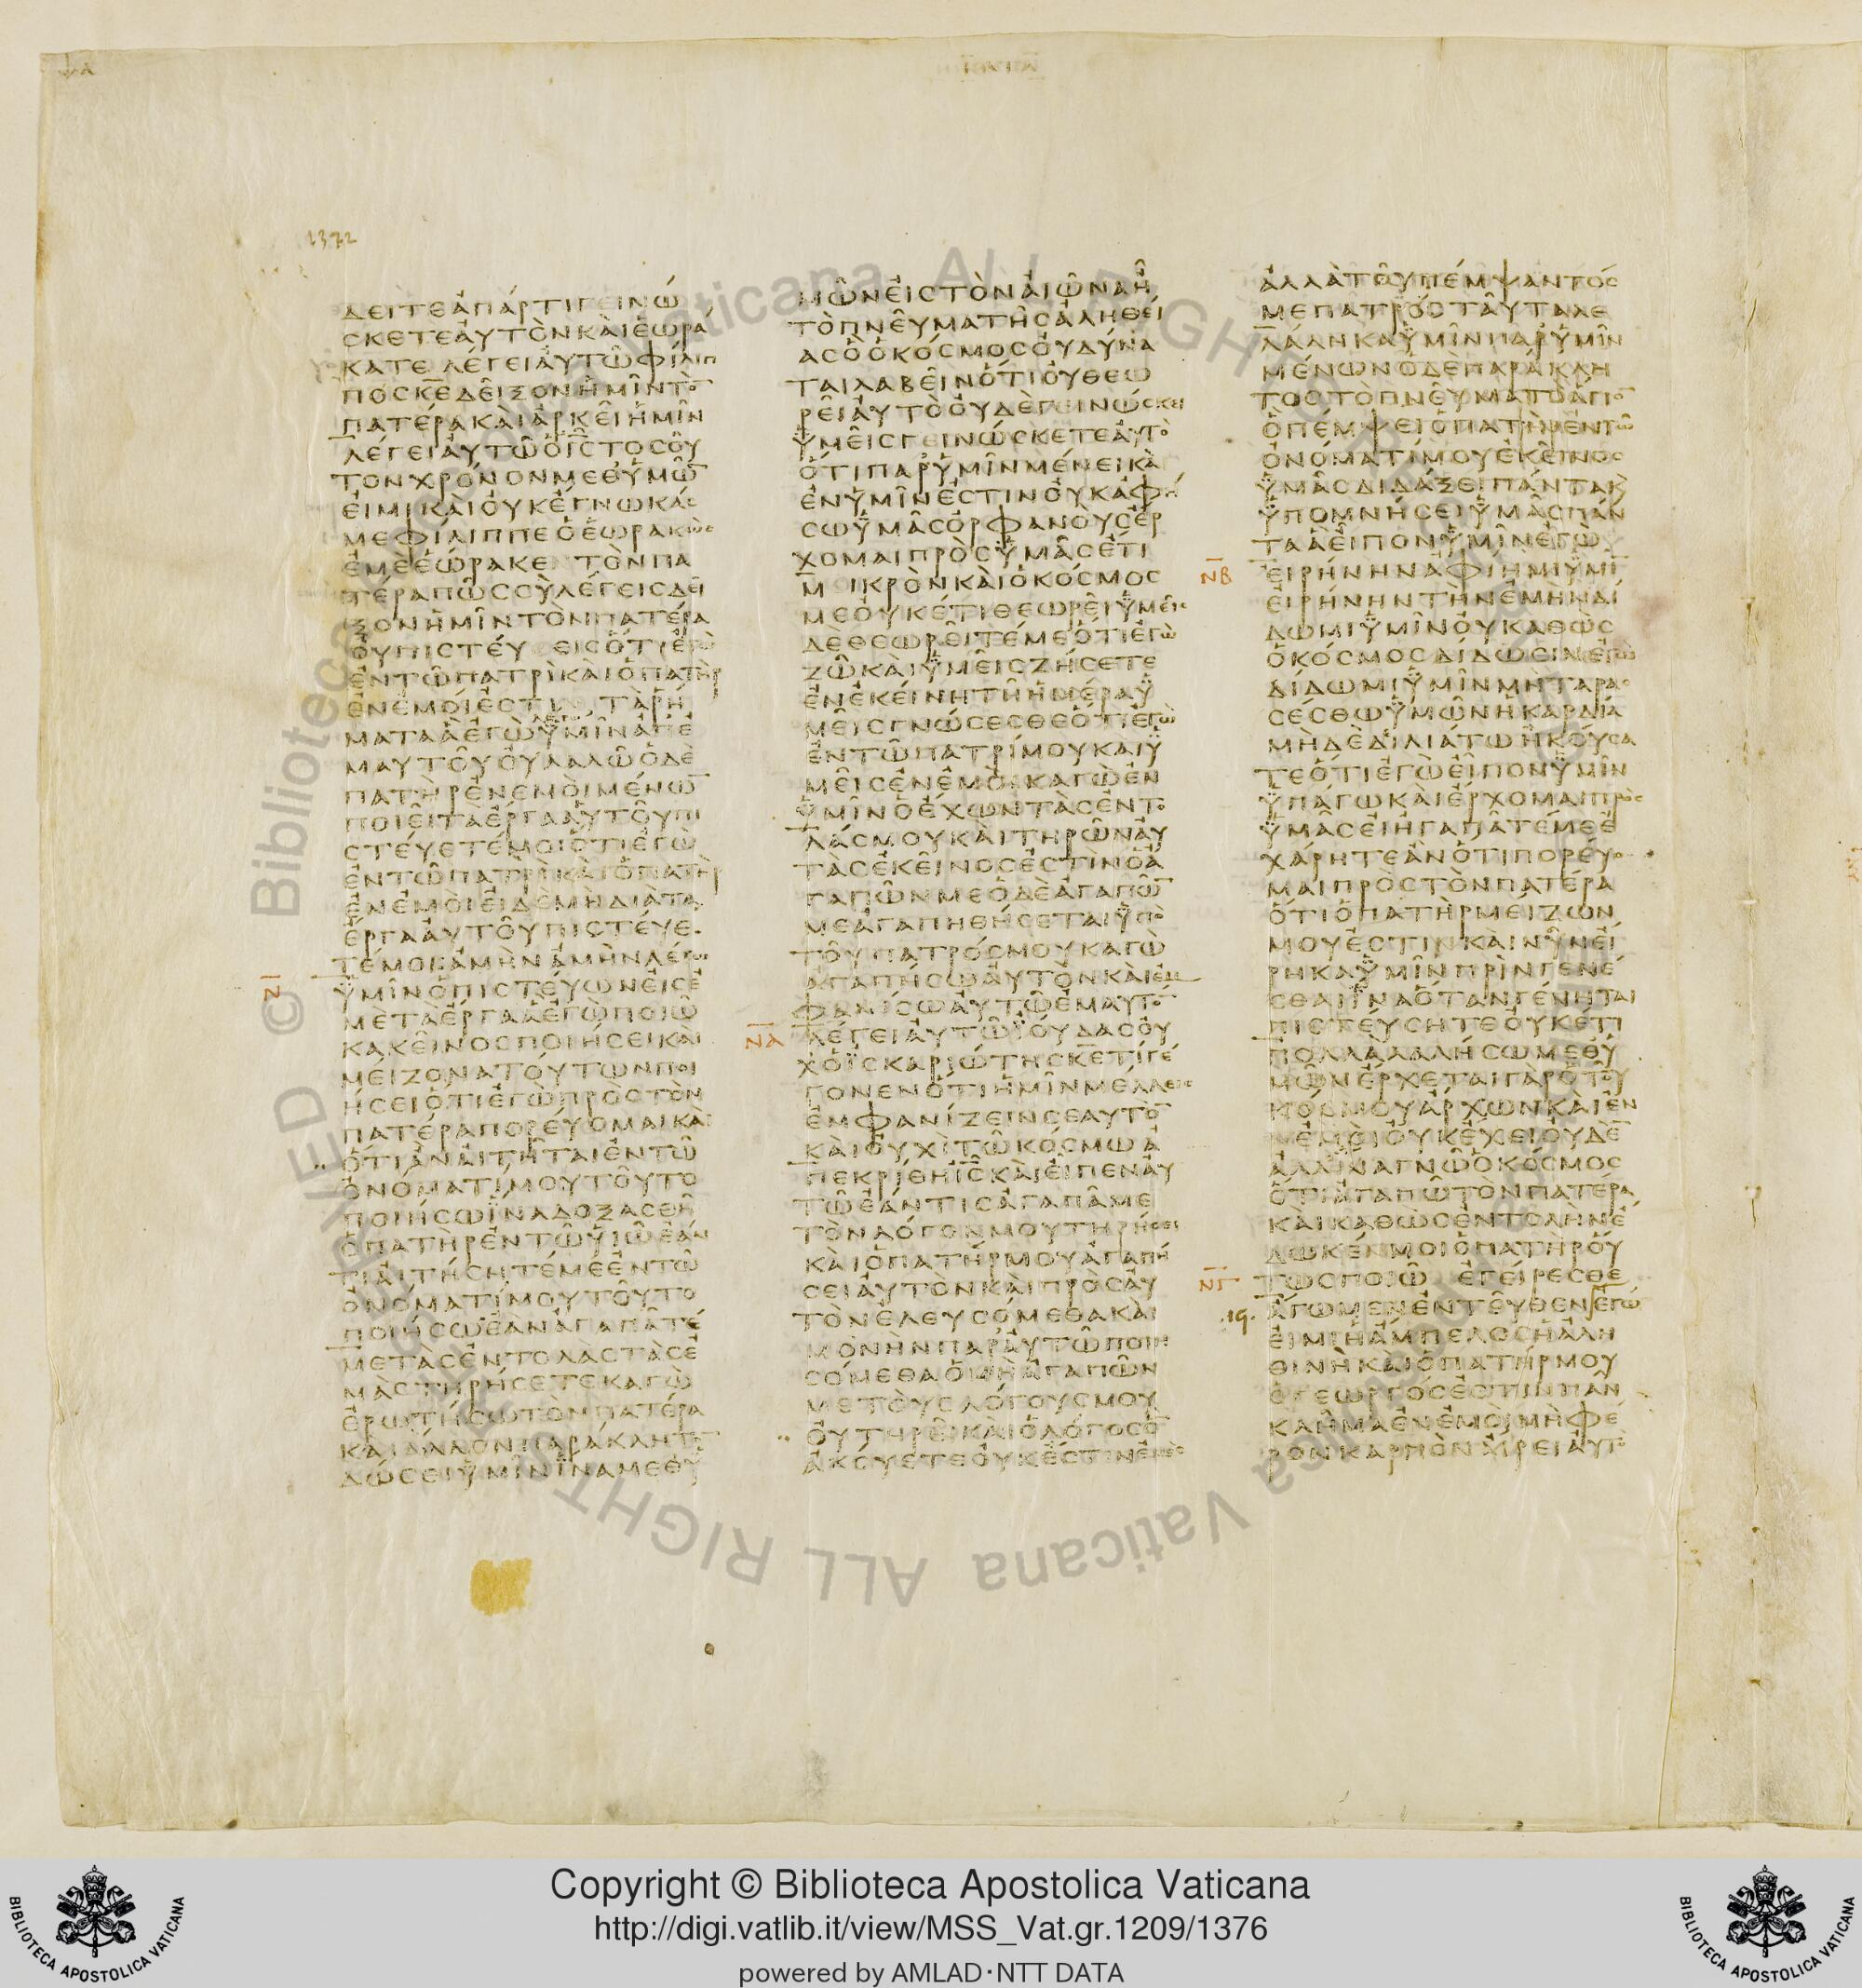 1372
ΔΕΙΤΕΑΠΑΡΤΙΓΕΙΝΩ
ΣΚΕΤΕΑΥΤΟΝΚΑΙΕΩΡΑ
ΚΑΤΕ ΛΕΓΕΙΑΥΤΩΦΙΛΙΠ
ΠΟΣΚ̅Ε̅ΔΕΙΞΟΝΗΜΙΝΤΟ̅
ΠΑΤΕΡΑΚΑΙΑΡΚΕΙΗΜΙΝ
ΛΕΓΕΙΑΥΤΩΟΙ̅Σ̅ΤΟΣΟΥ
ΤΟΝΧΡΟΝΟΝΜΕΘΥΜΩ̅
ΕΙΜΙΚΑΙΟΥΚΕΓΝΩΚΑΣ
ΜΕΦΙΛΙΠΠΕΟΕΩΡΑΚΩΣ
ΕΜΕΕΩΡΑΚΕ ΤΟΝΠΑ
ΤΕΡΑΠΩΣΣΥΛΕΓΕΙΣΔΕΙ
ΞΟΝΗΜΙΝΤΟΝΠΑΤΕΡΑ
ΟΥΠΙΣΤΕΥ ΕΙΣΟΤΙΕΓΩ
ΕΝΤΩΠΑΤΡΙΚΑΙΟΠΑΤΗΡ
ΕΝΕΜΟΙΕΣΤΙΝ ΤΑΡΗ
ΜΑΤΑΑΕΓΩΫΜΙΝΑΠΕ
ΜΑΥΤΟΥΟΥΛΑΛΩΟΔΕ
ΠΑΤΗΡΕΝΕΜΟΙΜΕΝΩ̅
ΠΟΙΕΙΤΑΕΡΓΑΑΥΤΟΥΠΙ
ΣΤΕΥΕΤΕΜΟΙΟΤΙΕΓΩ
ΕΝΤΩΠΑΤΡΙΚΑΙΟΠΑΤΗΡ
ΕΝΕΜΟΙΕΙΔΕΜΗΔΙΑΤΑ
ΕΡΓΑΑΥΤΟΥΠΙΣΤΕΥΕ
ΤΕΜΟΙΑΜΗΝΑΜΗΝΛΕΓΩ
Ν̅ ΫΜΙΝΟΠΙΣΤΕΥΩΝΕΙΣΕ
ΜΕΤΑΕΡΓΑΑΕΓΩΠΟΙΩ
ΚΑΚΕΙΝΟΣΠΟΙΗΣΕΙΚΑΙ
ΜΕΙΖΟΝΑΤΟΥΤΩΝΠΟΙ
ΗΣΕΙΟΤΙΕΓΩΠΡΟΣΤΟΝ
ΠΑΤΕΡΑΠΟΡΕΥΟΜΑΙΚΑΙ
ΟΤΙΑΝΑΙΤΗΤΑΙΕΝΤΩ
ΟΝΟΜΑΤΙΜΟΥΤΟΥΤΟ
ΠΟΙΗΣΩΪΝΑΔΟΞΑΣΘΗ
ΟΠΑΤΗΡΕΝΤΩΥΙΩΕΑΝ
ΤΙΑΙΤΗΣΗΤΕΜΕΕΝΤΩ
ΟΝΟΜΑΤΙΜΟΥΤΟΥΤΟ
ΠΟΙΗΣΩΕΑΝΑΓΑΠΑΤΕ
ΜΕΤΑΣΕΝΤΟΛΑΣΤΑΣΕ
ΜΑΣΤΗΡΗΣΕΤΕΚΑΓΩ
ΕΡΩΤΗΣΩΤΟΝΠΑΤΕΡΑ
ΚΑΙΑΛΛΟΝΠΑΡΑΚΛΗΤΟ̅
ΔΩΣΕΙΫΜΙΝΪΝΑΜΕΘΥ
ΜΩΝΕΙΣΤΟΝΑΙΩΝΑΗ
ΤΟΠΝΕΥΜΑΤΗΣΑΛΗΘΕΙ
ΑΣΟΟΚΟΣΜΟΣΟΥΔΥΝΑ
ΤΑΙΛΑΒΕΙΝΟΤΙΟΥΘΕΩ
ΡΕΙΑΥΤΟΟΥΔΕΓΕΙΝΩΣΚΕΙ
ΫΜΕΙΣΓΕΙΝΩΣΚΕΤΕΑΥΤΟ
ΟΤΙΠΑΡΫΜΙΝΜΕΝΕΙΚΑΙ
ΕΝΫΜΙΝΕΣΤΙΝΟΥΚΑΦΗ
ΣΩΫΜΑΣΟΡΦΑΝΟΥΣΕΡ
ΧΟΜΑΙΠΡΟΣΫΜΑΣΕΤΙ
Μ ΙΚΡΟΝΚΑΙΟΚΟΣΜΟΣ
ΜΕΟΥΚΕΤΙΘΕΩΡΕΙΫΜΕΙΣ
ΔΕΘΕΩΡΕΙΤΕΜΕΟΤΙΕΓΩ
ΖΩΚΑΙΫΜΕΙΣΖΗΣΕΤΕ
ΕΝΕΚΕΙΝΗΤΗΗΜΕΡΑΫ
ΜΕΙΣΓΝΩΣΕΣΘΕΟΤΙΕΓΩ
ΕΝΤΩΠΑΤΡΙΜΟΥΚΑΙΫ
ΜΕΙΣΕΝΕΜΟΙΚΑΓΩΕΝ
ΫΜΙΝΟΕΧΩΝΤΑΣΕΝΤΟ
ΛΑΣΜΟΥΚΑΙΤΗΡΩΝΑΥ
ΤΑΣΕΚΕΙΝΟΣΕΣΤΙΝΟΑ
ΓΑΠΩΝΜΕΟΔΕΑΓΑΠΩ̅
ΜΕΑΓΑΠΗΘΗΣΕΤΑΙΫΠΟ
ΤΟΥΠΑΤΡΟΣΜΟΥΚΑΓΩ
ΑΓΑΠΗΣΩΑΥΤΟΝΚΑΙΕΜ
ΦΑΝΙΣΩΑΥΤΩΕΜΑΥΤΟ̅
ΝΑ̅ ΛΕΓΕΙΑΥΤΩΪΟΥΔΑΣΟΥ
ΧΟΪΣΚΑΡΙΩΤΗΣΚ̅Ε̅ΤΙΓΕ
ΓΟΝΕΝΟΤΙΗΜΙΝΜΕΛΛΕΙΣ
ΕΜΦΑΝΙΖΕΙΝΣΕΑΥΤΟ̅
ΚΑΙΟΥΧΙΤΩΚΟΣΜΩΑ
ΠΕΚΡΙΘΗΙ̅Σ̅ΚΑΙΕΙΠΕΝΑΥ
ΤΩΕΑΝΤΙΣΑΓΑΠΑΜΕ
ΤΟΝΛΟΓΟΝΜΟΥΤΗΡΗΣΕΙ
ΚΑΙΟΠΑΤΗΡΜΟΥΑΓΑΠΗ
ΣΕΙΑΥΤΟΝΚΑΙΠΡΟΣΑΥ
ΤΟΝΕΛΕΥΣΟΜΕΘΑΚΑΙ
ΜΟΝΗΝΠΑΡΑΥΤΩΠΟΙΗ
ΣΟΜΕΘΑΟΜΗΑΓΑΠΩΝ
ΜΕΤΟΥΣΛΟΓΟΥΣΜΟΥ
ΟΥΤΗΡΕΙΚΑΙΟΛΟΓΟΣΟ̅
ΑΚΟΥΕΤΕΟΥΚΕΣΤΙΝΕΜΟΣ
ΑΛΛΑΤΟΥΠΕΜΨΑΝΤΟΣ
ΜΕΠΑΤΡΟΣΤΑΥΤΑΛΕ
ΛΑΛΗΚΑΫΜΙΝΠΑΡΫΜΙΝ
ΜΕΝΩΝΟΔΕΠΑΡΑΚΛΗ
ΤΟΣΤΟΠΝΕΥΜΑΤΟΑΓΙΟ̅
ΟΠΕΜΨΕΙΟΠΑΤΗΡΕΝΤΩ
ΟΝΟΜΑΤΙΜΟΥΕΚΕΙΝΟΣ
ΫΜΑΣΔΙΔΑΞΕΙΠΑΝΤΑΚ
ΫΠΟΜΝΗΣΕΙΫΜΑΣΠΑΝ
ΤΑΑΕΙΠΟΝΫΜΙΝΕΓΩ
ΝΒ̅ ΕΙΡΗΝΗΝΑΦΙΗΜΙΫΜΙ̅
ΕΙΡΗΝΗΝΤΗΝΕΜΗΝΔΙ
ΔΩΜΙΫΜΙΝΟΥΚΑΘΩΣ
ΟΚΟΣΜΟΣΔΙΔΩΣΙΝΕΓΩ
ΔΙΔΩΜΙΫΜΙΝΜΗΤΑΡΑΣ
ΣΕΣΘΩΫΜΩΝΗΚΑΡΔΙΑ
ΜΗΔΕΔΙΛΙΑΤΩΗΚΟΥΣΑ
ΤΕΟΤΙΕΓΩΕΙΠΟΝΫΜΙΝ
ΫΠΑΓΩΚΑΙΕΡΧΟΜΑΙΠΡΟΣ
ΫΜΑΣΕΙΗΓΑΠΑΤΕΜΕΕ
ΧΑΡΗΤΕΑΝΟΤΙΠΟΡΕΥΟ
ΜΑΙΠΡΟΣΤΟΝΠΑΤΕΡΑ
ΟΤΙΟΠΑΤΗΡΜΕΙΖΩΝ
ΜΟΥΕΣΤΙΝΚΑΙΝΥΝΕΙ
ΡΗΚΑΫΜΙΝΠΡΙΝΓΕΝΕ
ΣΘΑΙΪΝΑΟΤΑΝΓΕΝΗΤΑΙ
ΠΙΣΤΕΥΣΗΤΕΟΥΚΕΤΙ
ΠΟΛΛΑΛΑΛΗΣΩΜΕΘΥ
ΜΩΝΕΡΧΕΤΑΙΓΑΡΟΤΟΥ
ΚΟΣΜΟΥΑΡΧΩΝΚΑΙΕΝ
ΝΕΜΟΙΟΥΚΕΧΕΙΟΥΔΕ̅
ΑΛΛΪΝΑΓΝΩΟΚΟΣΜΟΣ
ΟΤΙΑΓΑΠΩΤΟΝΠΑΤΕΡΑ
ΚΑΙΚΑΘΩΣΕΝΤΟΛΗΝΕ
ΔΩΚΕΝΜΟΙΟΠΑΤΗΡΟΥ
ΝΓ̅ ΤΩΣΠΟΙΩ ΕΓΕΙΡΕΣΘΕ
.19. ΑΓΩΜΕΝΕΝΤΕΥΘΕΝΕΓΩ
ΕΙΜΙΗΑΜΠΕΛΟΣΗΑΛΗ
ΘΙΝΗΚΑΙΟΠΑΤΗΡΜΟΥ
ΟΓΕΩΡΓΟΣΕΣΤΙΝΠΑΝ
ΚΛΗΜΑΕΝΕΜΟΙΜΗΦΕ
ΡΟΝΚΑΡΠΟΝΑΙΡΕΙΑΥΤΟ
© Biblioteca Apostolica Vaticana ALL RIGHTS RESERVED
Copyright © Biblioteca Apostolica Vaticana
http://digi.vatlib.it/view/MSS_Vat.gr.1209/1376
powered by AMLAD·NTT DATA
BIBLIOTECA APOSTOLICA VATICANA
BIBLIOTECA APOSTOLICA VATICANA